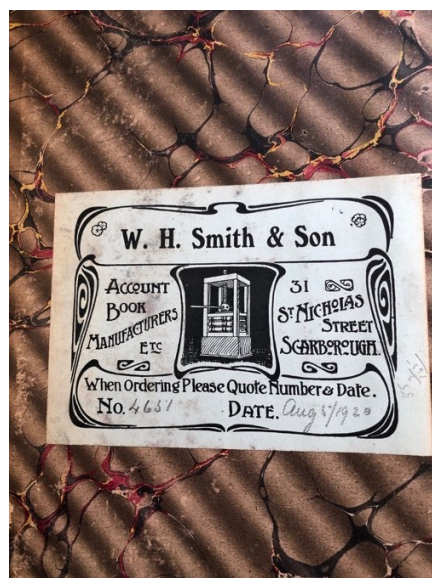 W. H. Smith & Son
Account
Book
Manufacturers
Etc
31
St Nicholas
Street
Scarborough.
When Ordering Please Quote Number & Date.
No. 4651 Date. Aug 5/1920